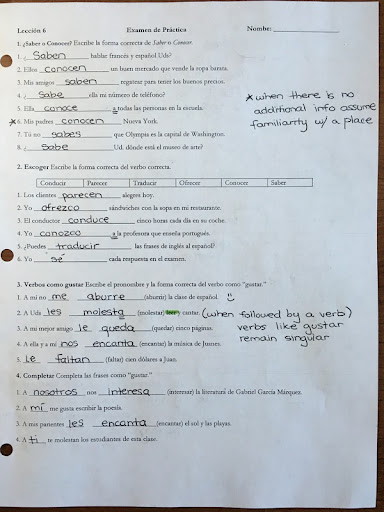 Lección 6 Examen de Práctica Nombre:
1. ¿Saber o Conocer? Escribe la forma correcta de Saber o Conocer.
1. ¿ Saben hablar francés y español Uds?
2. Ellos conocen un buen mercado que vende la sopa barata.
3. Mis amigos saben regatear para tener los buenos precios.
4. ¿ Sabe ella mi número de teléfono?
5. Ella conoce a todas las personas en la escuela.
* 6. Mis padres conocen Nueva York.
7. Tú no sabes que Olympia es la capital de Washington.
8. ¿ Sabe Ud. dónde está el museo de arte?
* when there is no
additional info assume
familiarty w/ a place
2. Escoger Escribe la forma correcta del verbo correcto.
Conducir Parecer Traducir Ofrecer Conocer Saber
1. Los clientes parecen alegres hoy.
2. Yo ofrezco sándwiches con la sopa en mi restaurante.
3. El conductor conduce cinco horas cada día en su coche.
4. Yo conozco a la profesora que enseña portugués.
5. ¿Puedes traducir las frases de inglés al español?
6. Yo sé cada respuesta en el examen.
3. Verbos como gustar Escribe el pronombre y la forma correcta del verbo como "gustar."
1. A mí no me aburre (aburrir) la clase de español.
2. A Uds les molesta (molestar) leer y cantar.
3. A mi mejor amigo le queda (quedar) cinco páginas.
4. A ella y a mí nos encanta (encantar) la música de Juanes.
5. Le faltan (faltar) cien dólares a Juan.
(when followed by a verb)
verbs like gustar
remain singular
4. Completar Completa las frases como "gustar."
1. A nosotros nos interesa (interesar) la literatura de Gabriel García Márquez.
2. A mí me gusta escribir la poesía.
3. A mis parientes les encanta (encantar) el sol y las playas.
4. A ti te molestan los estudiantes de esta clase.